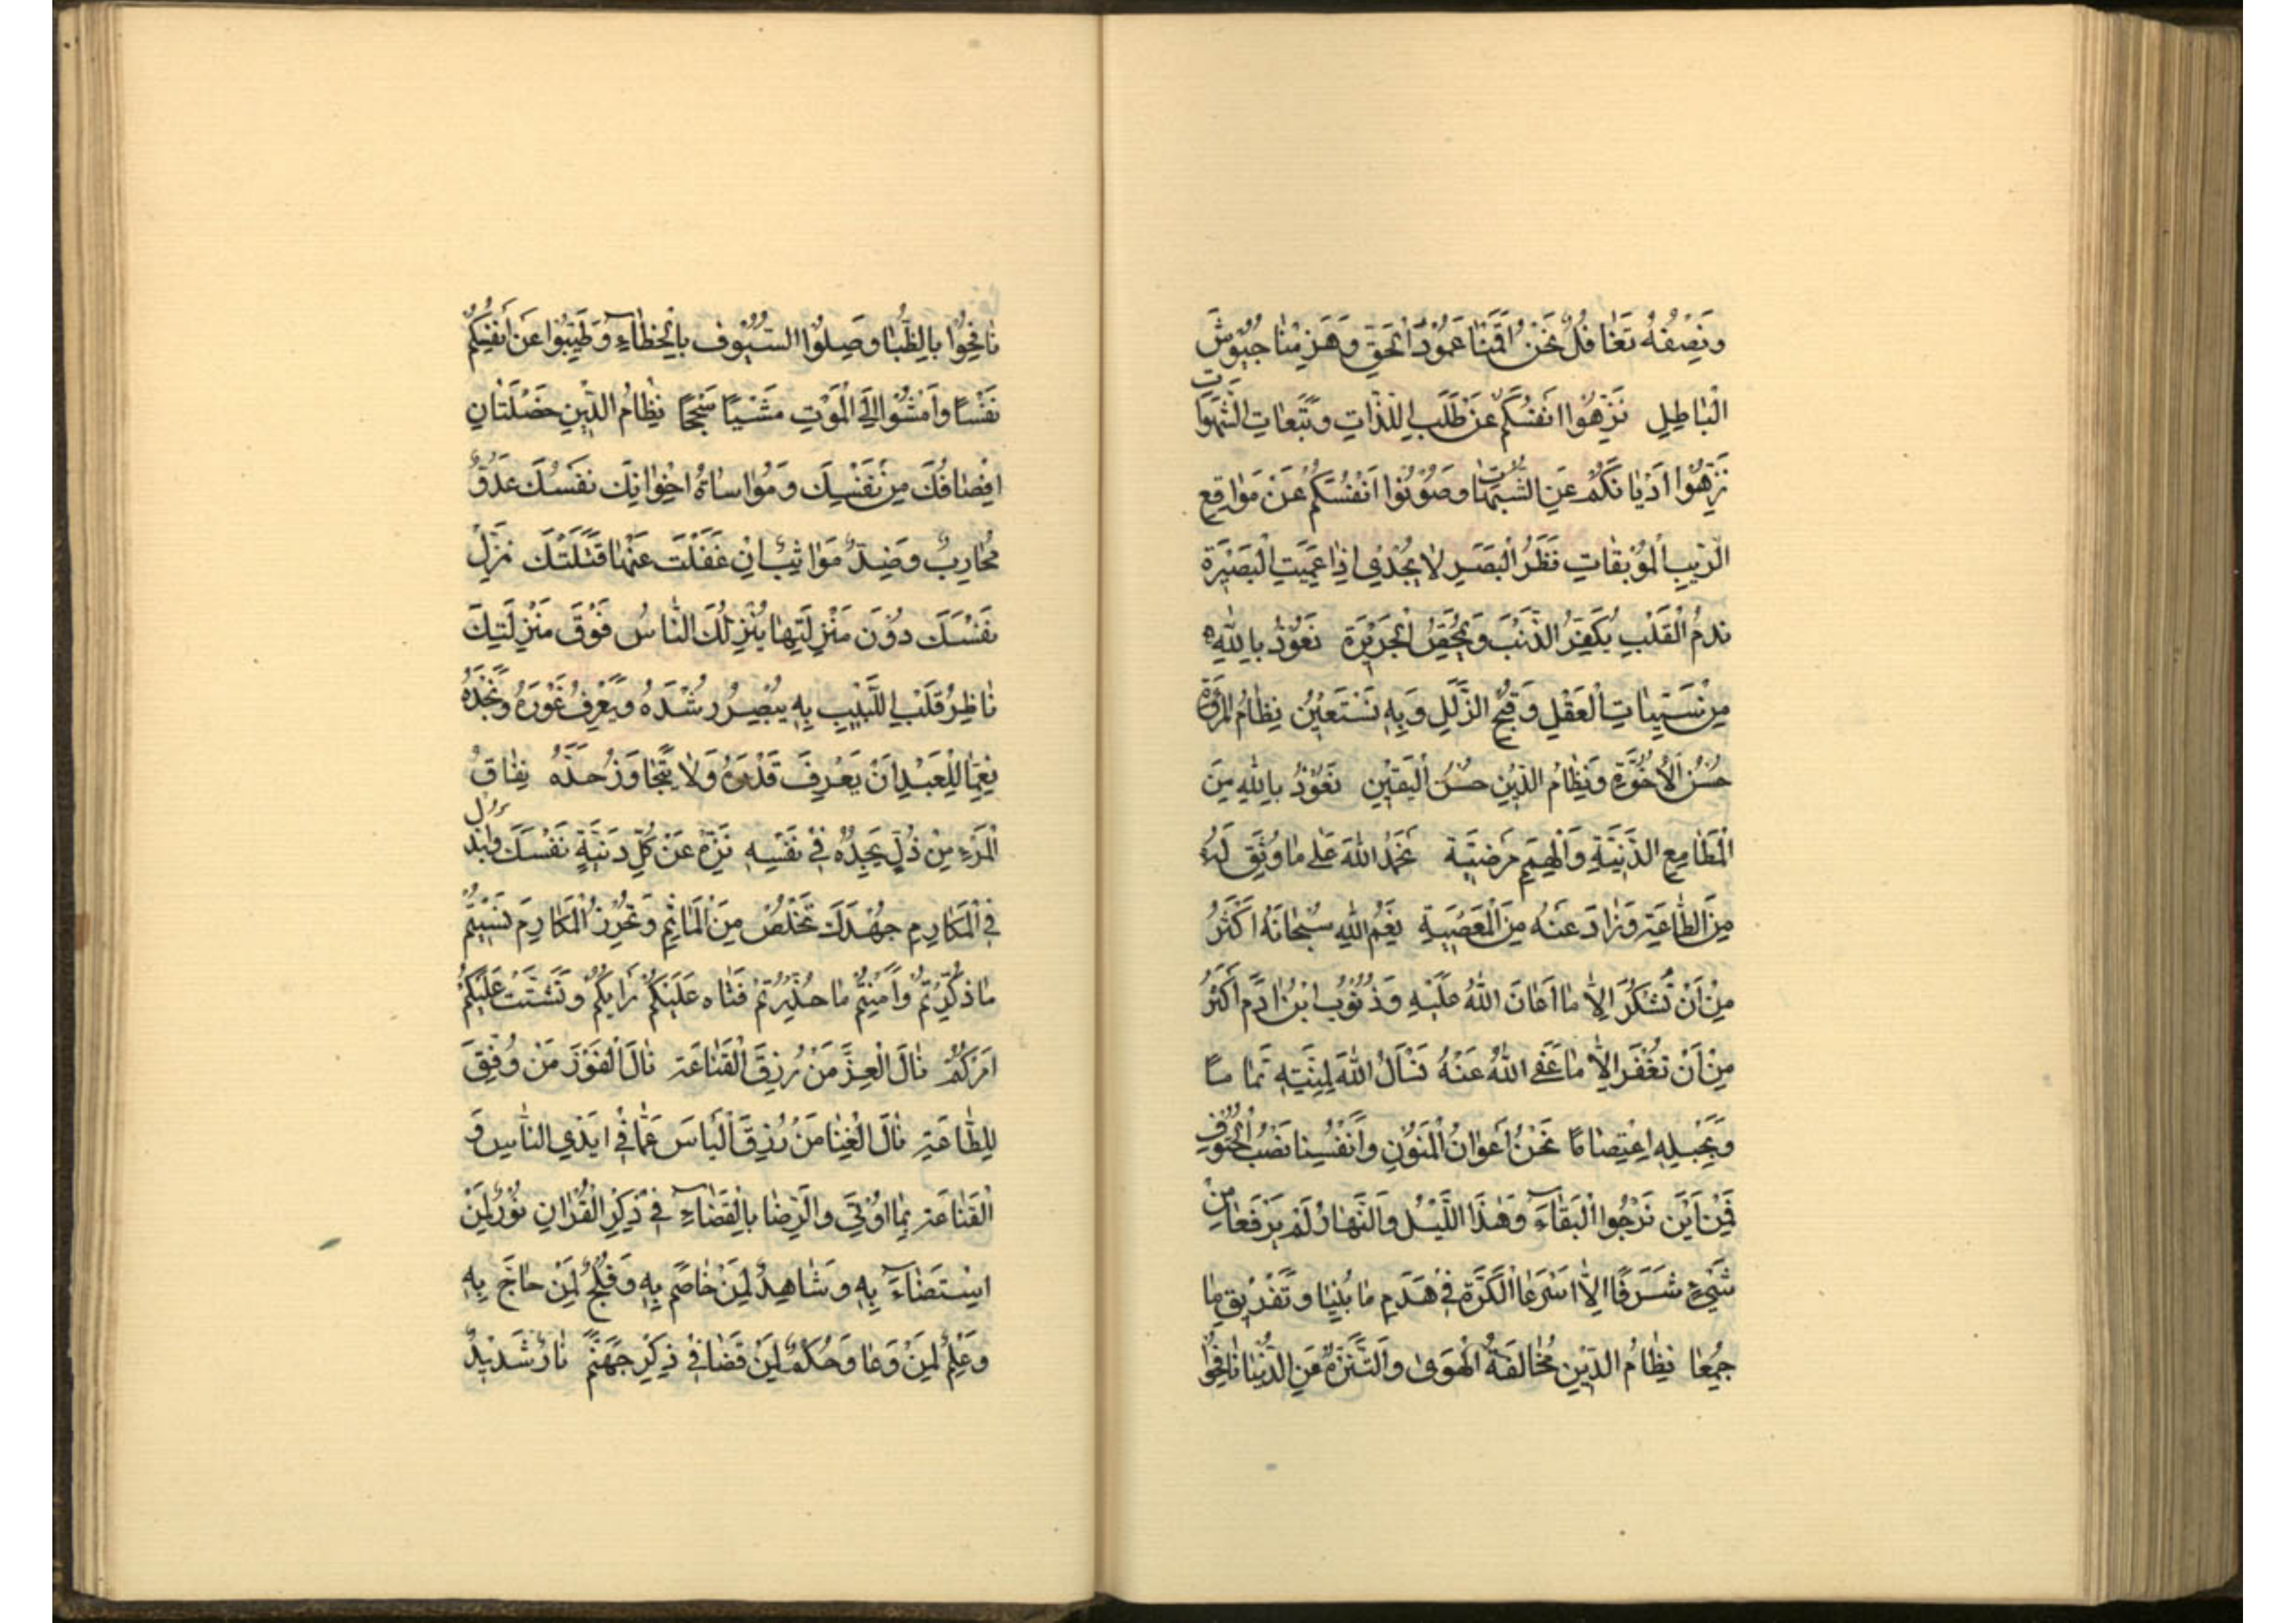 وَنِصْفُهُ تَغَافُلٌ نَحْنُ اَقَمْنَا عَمُودَ الْحَقِّ وَهَزَمْنَا جُيُوشَ
الْبَاطِلِ نَزِّهُوا اَنْفُسَكُمْ عَنْ طَلَبِ اللَّذَّاتِ وَتَبِعَاتِ الشَّهَوَاتِ
نَزِّهُوا اَدْيَانَكُمْ عَنِ الشُّبُهَاتِ وَصُونُوا اَنْفُسَكُمْ عَنْ مَوَاقِعِ
الرَّيْبِ الْمُوبِقَاتِ نَظَرُ الْبَصَرِ لَا يُجْدِي اِذَا عَمِيَتِ الْبَصِيرَةُ
نَدَمُ الْقَلْبِ يُكَفِّرُ الذَّنْبَ وَيُمَحِّصُ الْجَرِيرَةَ نَعُوذُ بِاللهِ
مِنْ سَيِّئَاتِ الْعَقْلِ وَقُبْحِ الزَّلَلِ وَبِهِ نَسْتَعِينُ نِظَامُ الْمُرُوَّةِ
حُسْنُ الْاُخُوَّةِ وَنِظَامُ الدِّينِ حُسْنُ الْيَقِينِ نَعُوذُ بِاللهِ مِنَ
الْمَطَامِعِ الدَّنِيَّةِ وَالْهِمَمِ مَرْضِيَّةِ نَحْمَدُ اللهَ عَلَى مَا وَفَّقَ لَهُ
مِنَ الطَّاعَةِ وَزَادَ عَنْهُ مِنَ الْمَعْصِيَةِ نِعَمُ اللهِ سُبْحَانَهُ اَكْثَرُ
مِنْ اَنْ تُشْكَرَ اِلَّا مَا اَعَانَ اللهُ عَلَيْهِ وَذُنُوبُ ابْنِ اٰدَمَ اَكْثَرُ
مِنْ اَنْ تُغْفَرَ اِلَّا مَا عَفَى اللهُ عَنْهُ نَسْأَلُ اللهَ لِمِنَّتِهِ تَمَامًا
وَبِحَبْلِهِ اعْتِصَامًا نَحْنُ اَعْوَانُ الْمَنُونِ وَاَنْفُسُنَا نَصْبُ الْحُتُوفِ
فَمِنْ اَيْنَ نَرْجُوا الْبَقَآءَ وَهَذَا اللَّيْلُ وَالنَّهَارُ لَمْ يَرْفَعَا مِنْ
شَيْءٍ شَرَفًا اِلَّا اَسْرَعَا الْكَرَّةَ فِي هَدَمِ مَا بُنِيَا وَتَفْرِيقِ مَا
جُمِعَا نِظَامُ الدِّينِ مُخَالَفَةُ الْهَوَى وَالتَّنَزُّهُ عَنِ الدُّنْيَا نَافِحُوا
نَافِحُوا بِالظُّبَا وَصِلُوا السُّيُوفَ بِالْخُطَآءِ وَطَيِّبُوا عَنْ اَنْفُسِكُمْ
نَفْسًا وَامْشُوا اِلَى الْمَوْتِ مَشْيًا سُجُحًا نِظَامُ الدِّينِ خَصْلَتَانِ
اِنْصَافُكَ مِنْ نَفْسِكَ وَمُوَاسَاةُ اِخْوَانِكَ نَفْسُكَ عَدُوٌّ
مُحَارِبٌ وَضِدٌّ مُوَاثِبٌ اِنْ غَفَلْتَ عَنْهَا قَتَلَتْكَ نَزِّلْ
نَفْسَكَ دُونَ مَنْزِلَتِهَا يُنْزِلْكَ النَّاسُ فَوْقَ مَنْزِلَتِكَ
نَاظِرُ قَلْبِ اللَّبِيبِ بِهِ يُبْصِرُ رُشْدَهُ وَيَعْرِفُ غَوْرَهُ وَنَجْدَهُ
نِعِمَّا لِلْعَبْدِ اَنْ يَعْرِفَ قَدْرَهُ وَلَا يَتَجَاوَزُ حَدَّهُ نِفَاقُ
الْمَرْءِ مِنْ ذُلٍّ يَجِدُهُ فِي نَفْسِهِ نَزِّهْ عَنْ كُلِّ دَنِيَّةٍ نَفْسَكَ وَابْذُلْ
فِي الْمَكَارِمِ جُهْدَكَ تَخْلُصْ مِنَ الْمَاٰثِمِ وَتُحْرِزُ الْمَكَارِمَ نَسِيتُمْ
مَا ذُكِّرْتُمْ وَاَمِنْتُمْ مَا حُذِّرْتُمْ فَتَاهَ عَلَيْكُمْ رَايُكُمْ وَتَشَتَّتَ عَلَيْكُمْ
اَمْرُكُمْ نَالَ الْعِزَّ مَنْ رُزِقَ الْقَنَاعَةَ نَالَ الْفَوْزَ مَنْ وُفِّقَ
لِلطَّاعَةِ نَالَ الْغِنَا مَنْ رُزِقَ الْيَاسَ عَمَّا فِي اَيْدِي النَّاسِ وَ
الْقَنَاعَةَ بِمَا اُوتِيَ وَالرِّضَا بِالْقَضَآءِ فِي ذِكْرِ الْقُرْاٰنِ نُورٌ لِمَنْ
اسْتَضَآءَ بِهِ وَشَاهِدٌ لِمَنْ خَاصَمَ بِهِ وَفَلْجٌ لِمَنْ حَاجَّ بِهِ
وَعِلْمٌ لِمَنْ وَعَا وَحُكْمٌ لِمَنْ قَضَا فِي ذِكْرِ جَهَنَّمَ نَارٌ شَدِيدٌ